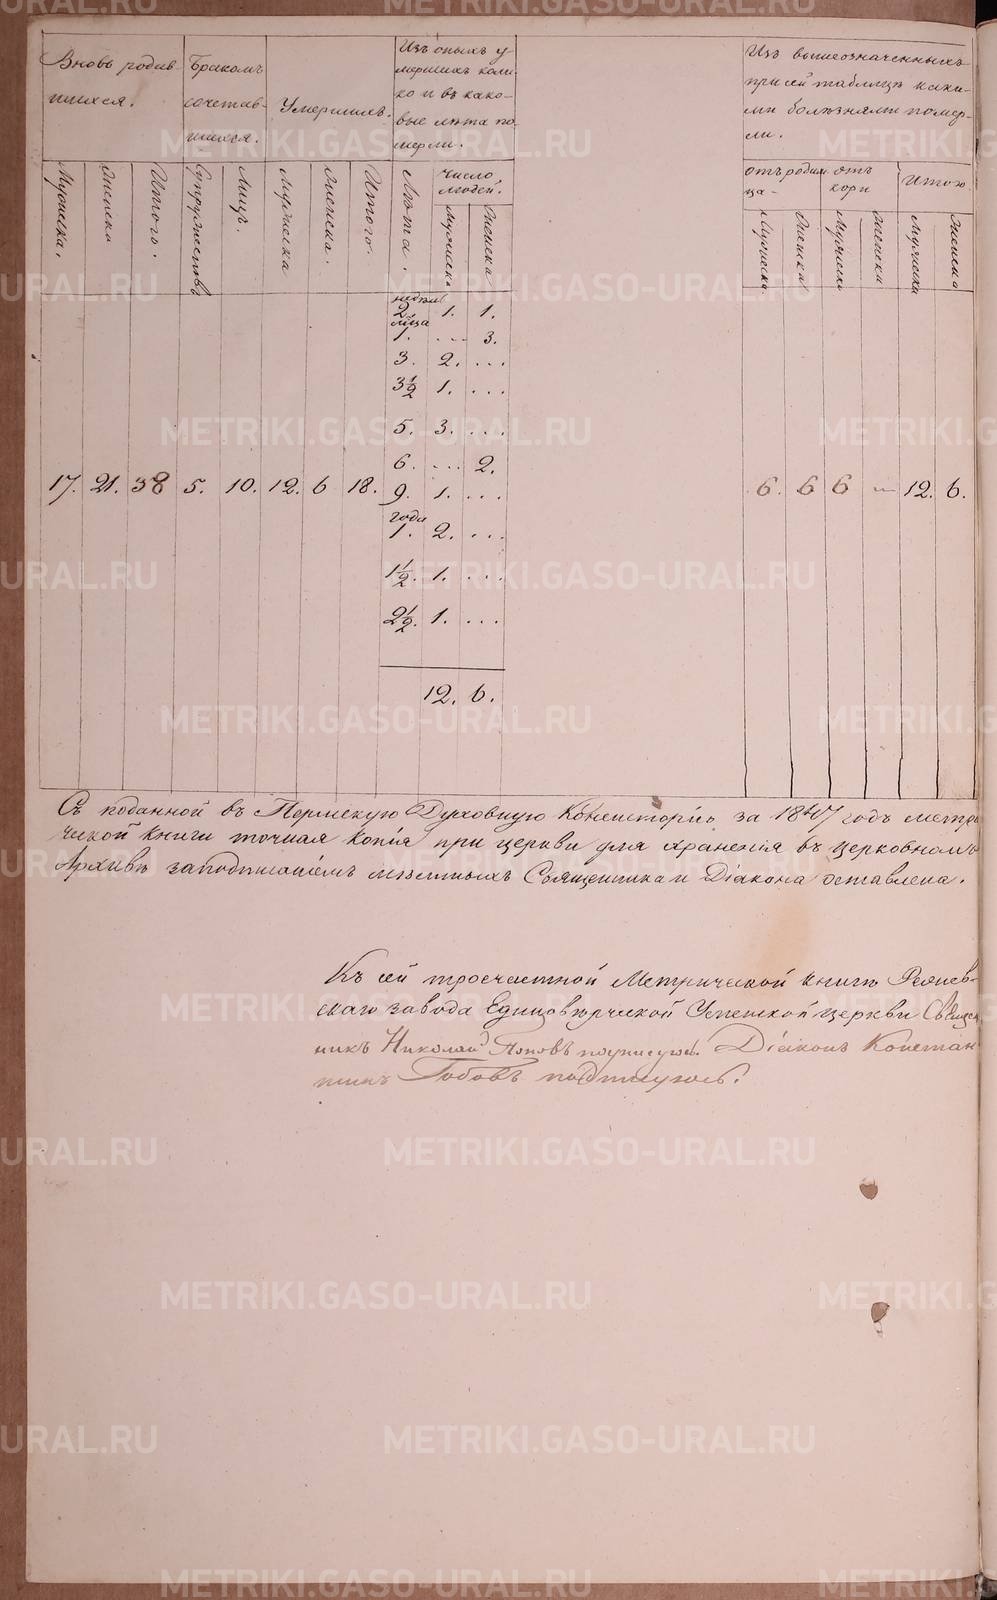 Вновь родив-
шихся.
Бракомъ
сочетав-
шихся.
Умершихъ.
Изъ оныхъ у-
мершихъ коли-
ко и въ како-
вые лѣта по-
мерли.
Изъ вышеозначенныхъ
при сей таблицѣ каки-
ми болѣзнями помер-
ли.
Мужеска.
Женска
Итого.
Супружествъ
Лицъ.
Мужеска
Женска.
Итого.
Лѣта.
Число
людей.
Мужеска
Женска
отъ родим
ца-
отъ
кори
Итого
Мужеска
Женска
Мужеска
Женска
Мужеска
Женска
недѣли
2. 1. 1.
м͠ца
1. ... 3.
3. 2. ...
3½ 1. ...
5. 3. ...
6. ... 2.
17. 21. 38 5. 10. 12. 6 18. 9. 1. ... 6. 6 6 — 12. 6.
года
1. 2. ...
1½. 1. ...
2½. 1. ...
12. 6.
Съ поданной въ Пермскую Духовную Консисторію за 1847 годъ метри
ческой книги точная копія при церкви для храненія въ церковномъ
Архивѣ заподписаніемъ мѣстныхъ Священника и Діакона оставлена.
Къ сей троечастной Метрической книгѣ
скаго завода Единовѣрческой церкви Священ
никъ Николай Поповъ подписуюсь. Діаконъ Констан
тинъ подписуюсь.
METRIKI.GASO-URAL.RU